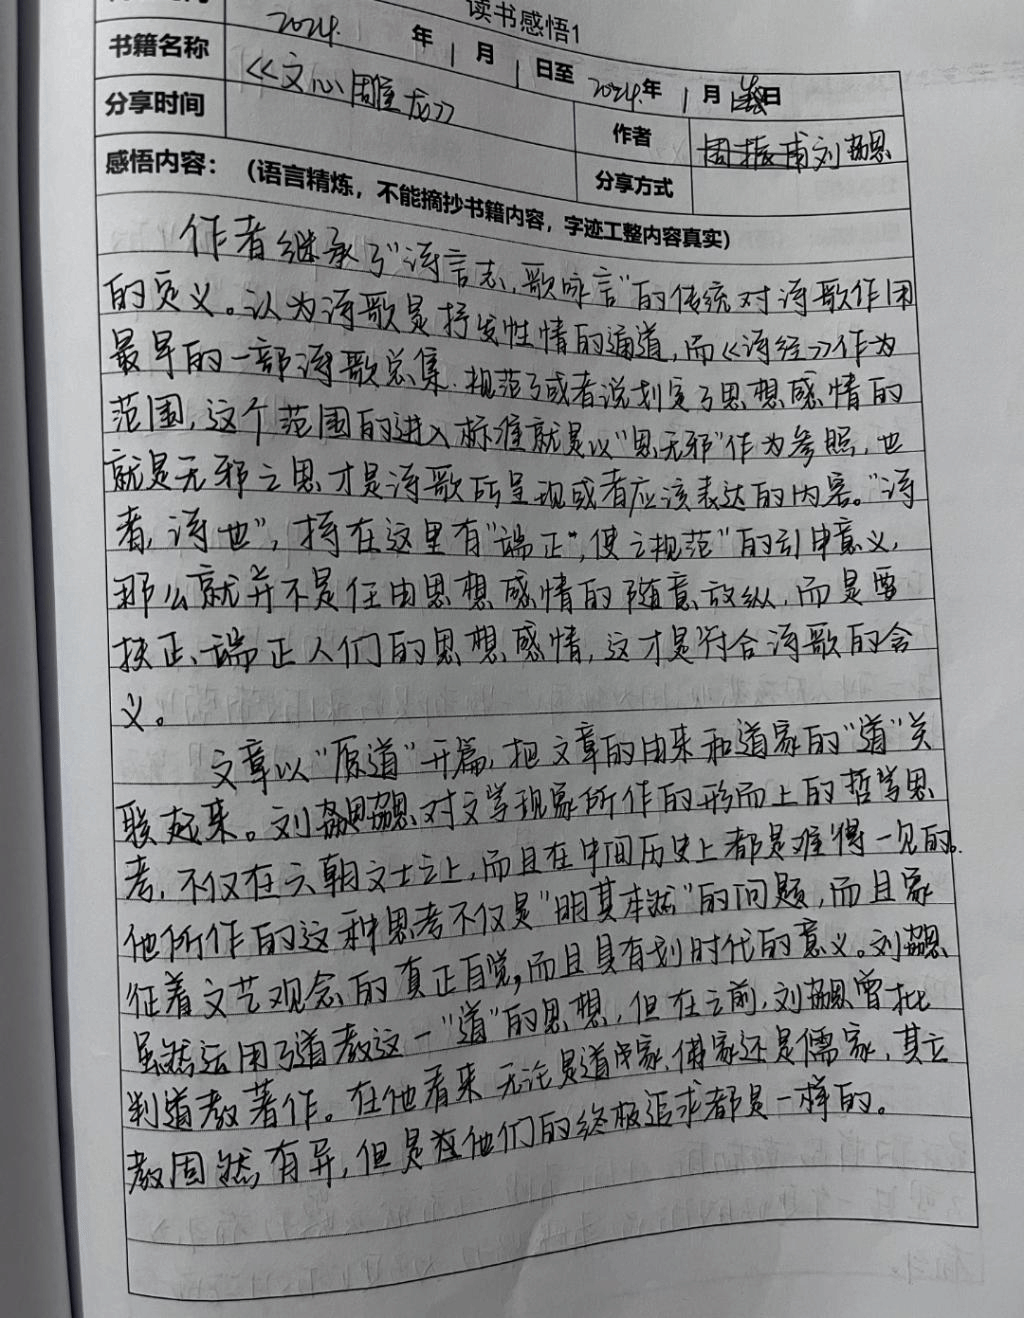 读书感悟1
2024. 年 1 月 1 日至 2024.年 1 月 日
书籍名称 《文心雕龙》 作者 周振甫刘勰
分享时间 分享方式
感悟内容：（语言精炼，不能摘抄书籍内容，字迹工整内容真实）
作者继承了“诗言志，歌咏言”的传统对诗歌作出
的定义。认为诗歌是抒发性情的通道，而《诗经》作为
最早的一部诗歌总集.规范了或者说划定了思想感情的
范围，这个范围的进入标准就是以“思无邪”作为参照，也
就是无邪之思才是诗歌所呈现或者应该表达的内容。“诗
者，诗也”，持在这里有“端正”，使之规范”的引申意义，
那么就并不是任由思想感情的随意放纵，而是要
扶正、端正人们的思想感情，这才是符合诗歌的含
义。
文章以“原道”开篇，把文章的由来和道家的“道”关
联起来。刘勰对文学现象所作的形而上的哲学思
考，不仅在六朝文士之上，而且在中国历史上都是难得一见的。
他所作的这种思考不仅是“明其本然”的问题，而且象
征着文艺观念的真正自觉，而且具有划时代的意义。刘勰
虽然运用了道教这一“道”的思想，但在之前，刘勰曾批
判道教著作。在他看来，无论是道家、佛家还是儒家，其立
教固然有异，但是在他们的终极追求都是一样的。